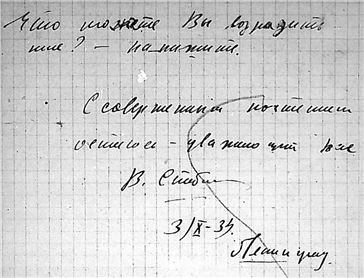 Что можете Вы возразить
мне? — напишите.
С совершенным почтением
остаюсь — уважающий Вас
В. Стеб
3/X-34.
Ленинград.